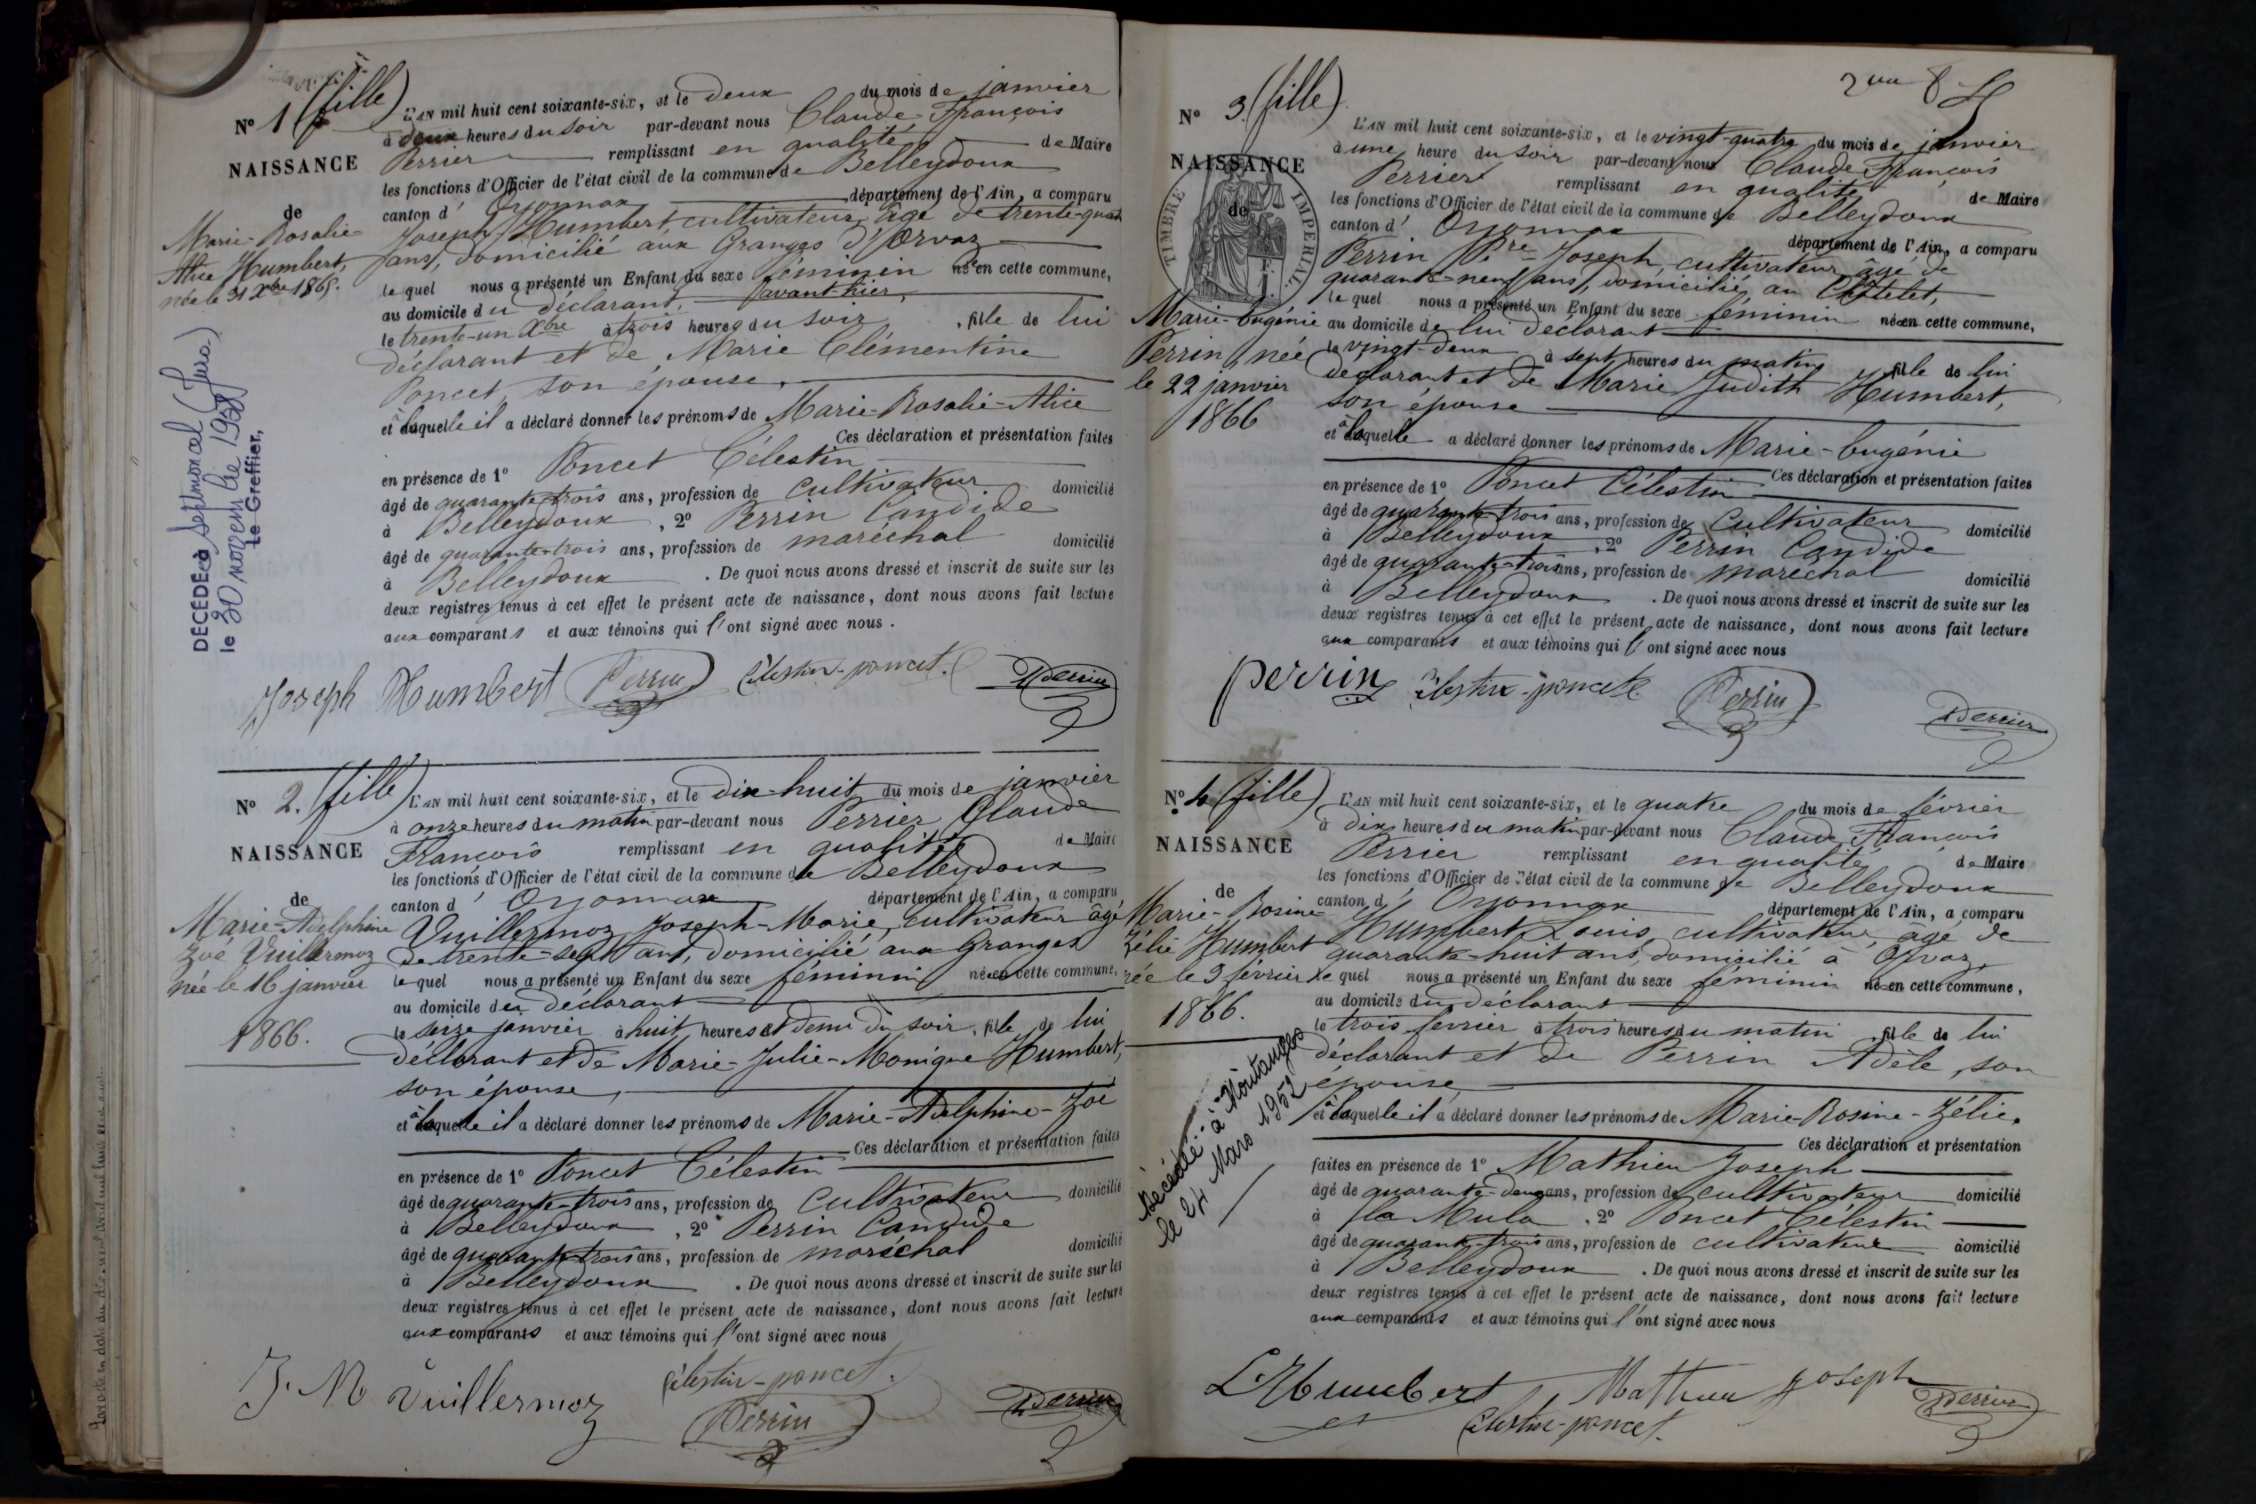 N° 1 (fille)
NAISSANCE
de
Marie-Rosalie-
Alice Humbert,
née le 31 Xbre 1865.
DÉCÉDÉ à Septmoncel (Jura)
le 30 novembre
Le Greffier,
L'AN mil huit cent soixante-six, et le deux du mois de janvier
à deux heures du soir par-devant nous Claude François
Perrier remplissant en qualité de Maire
les fonctions d'Officier de l'état civil de la commune de Belleydoux
canton d' Oyonnax département de l'Ain, a comparu
Joseph Humbert, cultivateur, âgé de trente-quatre
ans, domicilié aux Granges d'Orvaz
le quel nous a présenté un Enfant du sexe féminin né en cette commune,
au domicile du déclarant, avant-hier,
le trente-un Xbre à trois heures du soir, fille de lui
déclarant et de Marie Clémentine
Poncet, son épouse,
et à laquelle il a déclaré donner les prénoms de Marie-Rosalie-Alice
Ces déclaration et présentation faites
en présence de 1° Poncet Célestin
âgé de quarante-trois ans, profession de cultivateur domicilié
à Belleydoux, 2° Perrin Candide
âgé de quarante-trois ans, profession de maréchal domicilié
à Belleydoux. De quoi nous avons dressé et inscrit de suite sur les
deux registres tenus à cet effet le présent acte de naissance, dont nous avons fait lecture
aux comparants et aux témoins qui l'ont signé avec nous.
Joseph Humbert Perrin Célestin-poncet. Perrier
N° 2. (fille)
NAISSANCE
de
Marie-Adelphine
Zoé Vuillermoz
née le 16 janvier
1866.
L'AN mil huit cent soixante-six, et le dix-huit du mois de janvier
à onze heures du matin par-devant nous Perrier Claude
François remplissant en qualité de Maire
les fonctions d'Officier de l'état civil de la commune de Belleydoux
canton d' Oyonnax département de l'Ain, a comparu
Vuillermoz Joseph-Marie, cultivateur âgé
de trente-sept ans, domicilié aux Granges
le quel nous a présenté un Enfant du sexe féminin né en cette commune,
au domicile du déclarant
le seize janvier à huit heures et demi du soir, fille de lui
déclarant et de Marie-Julie-Monique Humbert,
son épouse,
et à laquelle il a déclaré donner les prénoms de Marie-Adelphine-Zoé
Ces déclaration et présentation faites
en présence de 1° Poncet Célestin
âgé de quarante-trois ans, profession de cultivateur domicilié
à Belleydoux, 2° Perrin Candide
âgé de quarante-trois ans, profession de maréchal domicilié
à Belleydoux. De quoi nous avons dressé et inscrit de suite sur les
deux registres tenus à cet effet le présent acte de naissance, dont nous avons fait lecture
aux comparants et aux témoins qui l'ont signé avec nous
J. M Vuillermoz Célestin-poncet.
Perrin Perrier
N° 3 (fille)
NAISSANCE
de
TIMBRE IMPERIAL
Marie-Eugénie
Perrin, née
le 22 janvier
1866
L'AN mil huit cent soixante-six, et le vingt-quatre du mois de janvier
à une heure du soir par-devant nous Claude François
Perrier remplissant en qualité de Maire
les fonctions d'Officier de l'état civil de la commune de Belleydoux
canton d' Oyonnax département de l'Ain, a comparu
Perrin Pre-Joseph, cultivateur, âgé de
quarante-neuf ans, domicilié au Châtelet,
le quel nous a présenté un Enfant du sexe féminin né en cette commune,
au domicile de lui déclarant
le vingt-deux à sept heures du matin fille de lui
déclarant et de Marie Judith Humbert,
son épouse
et à laquelle a déclaré donner les prénoms de Marie-Eugénie
Ces déclaration et présentation faites
en présence de 1° Poncet Célestin
âgé de quarante-trois ans, profession de cultivateur domicilié
à Belleydoux, 2° Perrin Candide
âgé de quarante-trois ans, profession de maréchal domicilié
à Belleydoux. De quoi nous avons dressé et inscrit de suite sur les
deux registres tenus à cet effet le présent acte de naissance, dont nous avons fait lecture
aux comparants et aux témoins qui l'ont signé avec nous
Perrin Célestin-poncet Perrin Perrier
N° 4 (fille)
NAISSANCE
de
Marie-Rosine
Zélie Humbert
née le 3 février
1866.
Décédée à Montanges
le 24 Mars 1952
L'AN mil huit cent soixante-six, et le quatre du mois de février
à dix heures du matin par-devant nous Claude François
Perrier remplissant en qualité de Maire
les fonctions d'Officier de l'état civil de la commune de Belleydoux
canton d' Oyonnax département de l'Ain, a comparu
Humbert Louis, cultivateur, âgé de
quarante-huit ans, domicilié à Orvaz,
le quel nous a présenté un Enfant du sexe féminin né en cette commune,
au domicile du déclarant
le trois février à trois heures du matin fille de lui
déclarant et de Perrin Adèle, son
épouse,
et à laquelle il a déclaré donner les prénoms de Marie-Rosine-Zélie.
Ces déclaration et présentation
faites en présence de 1° Mathieu Joseph
âgé de quarante-deux ans, profession de cultivateur domicilié
à la Mula, 2° Poncet Célestin
âgé de quarante-trois ans, profession de cultivateur domicilié
à Belleydoux. De quoi nous avons dressé et inscrit de suite sur les
deux registres tenus à cet effet le présent acte de naissance, dont nous avons fait lecture
aux comparants et aux témoins qui l'ont signé avec nous
L. Humbert Mathieu Joseph
Célestin-poncet. Perrier